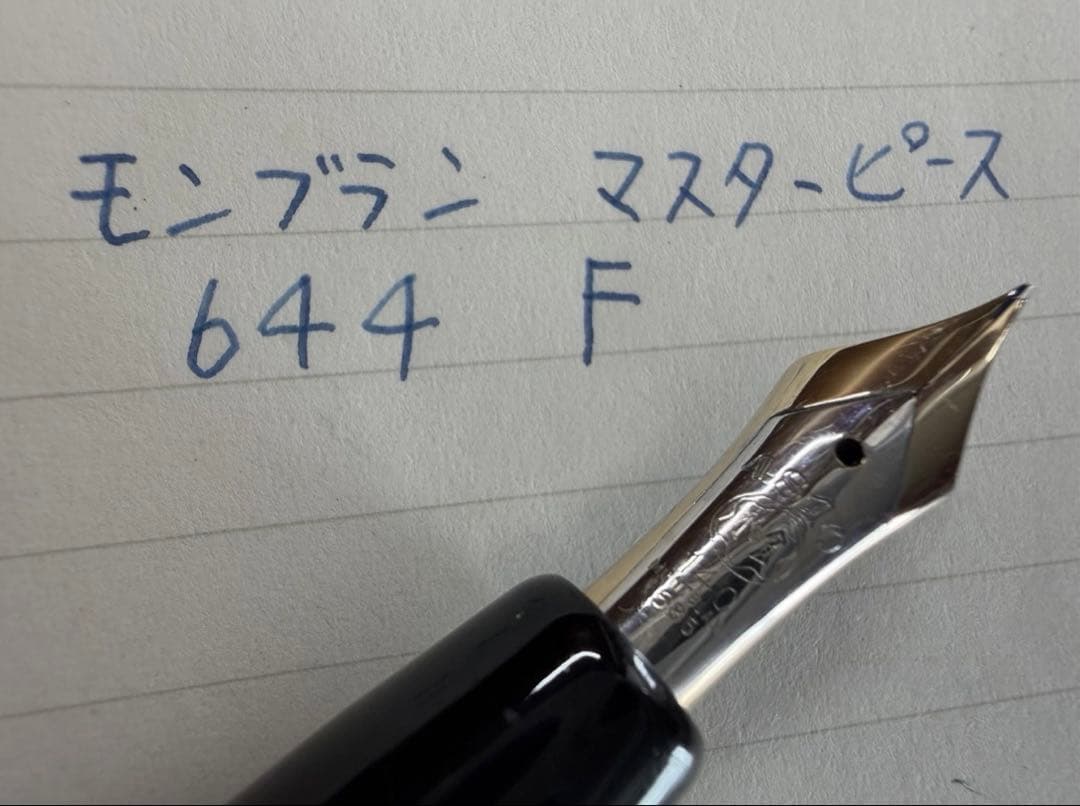 モンブラン マスターピース
644 F